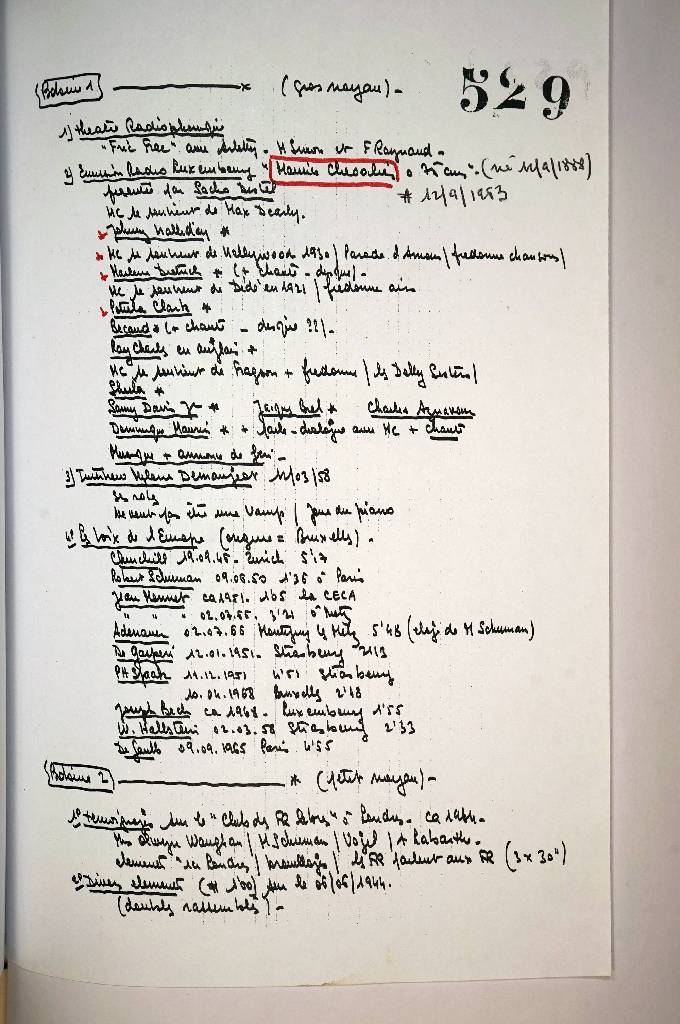 529
Bobine 1 ——— x (Gros noyau) -
1) Theatre Radiophonique
"Fric Frac" avec Arletty - M Simon et F Raynaud -
2) Emission Radio Luxembourg "Maurice Chevalier a 75 ans". (né 12/9/1888)
presentée par Sacha Distel * 12/9/1963
MC se souvient de Max Dearly.
Johnny Halliday *
MC se souvient de Hollywood 1930 / Parade d'Amour / fredonne chansons /
Marlene Dietrich * (+ chante - disque) -
MC se souvient de Dédé en 1921 / fredonne air
Petula Clark *
Becaud * (+ chante - disque ??) -
Ray Charles en anglais *
MC se souvient de Fragson + fredonne / les Dolly Sisters /
Sheila *
Samy Davis Jr * Jacques Brel * Charles Aznavour
Dominique * + dialogue avec MC + chante
Musique + annonce de fin -
3) Interview Mylene Demongeot 12/03/58
ses roles
ne veut pas être une Vamp / joue du piano
4° Les Voix de l'Europe (origine = Bruxelles) -
Churchill 19.09.46 - Zurich 5'17
Robert Schuman 09.05.50 1'35 à Paris
Jean Monnet ca 1951 - 1'05 la CECA
" " " 02.07.66. 3'21 à Metz
Adenauer 02.07.66 Montigny les Metz 5'48 (eloge de M Schuman)
De Gasperi 12.01.1951 - Strasbourg 2'13
PH Spaak 11.12.1951 4'51 Strasbourg
10.04.1968 Bruxelles 2'13
Joseph Bech ca 1968 - Luxembourg 1'55
W. Hallstein 02.03.58 Strasbourg 2'33
De Gaulle 09.09.1965 Paris 4'55
Bobine 2 ——— * (petit noyau) -
1° temoignages sur le "Club des FR Libres" à Londres - ca 1944 -
Olwyn Vaughan / M Schuman / Vogel / A Labarthe -
element "ici Londres / brouillage / les FR parlent aux FR (3 x 30")
2° Divers elements (* 1'00) sur le 06/06/1944.
(doubles rassemblés) -